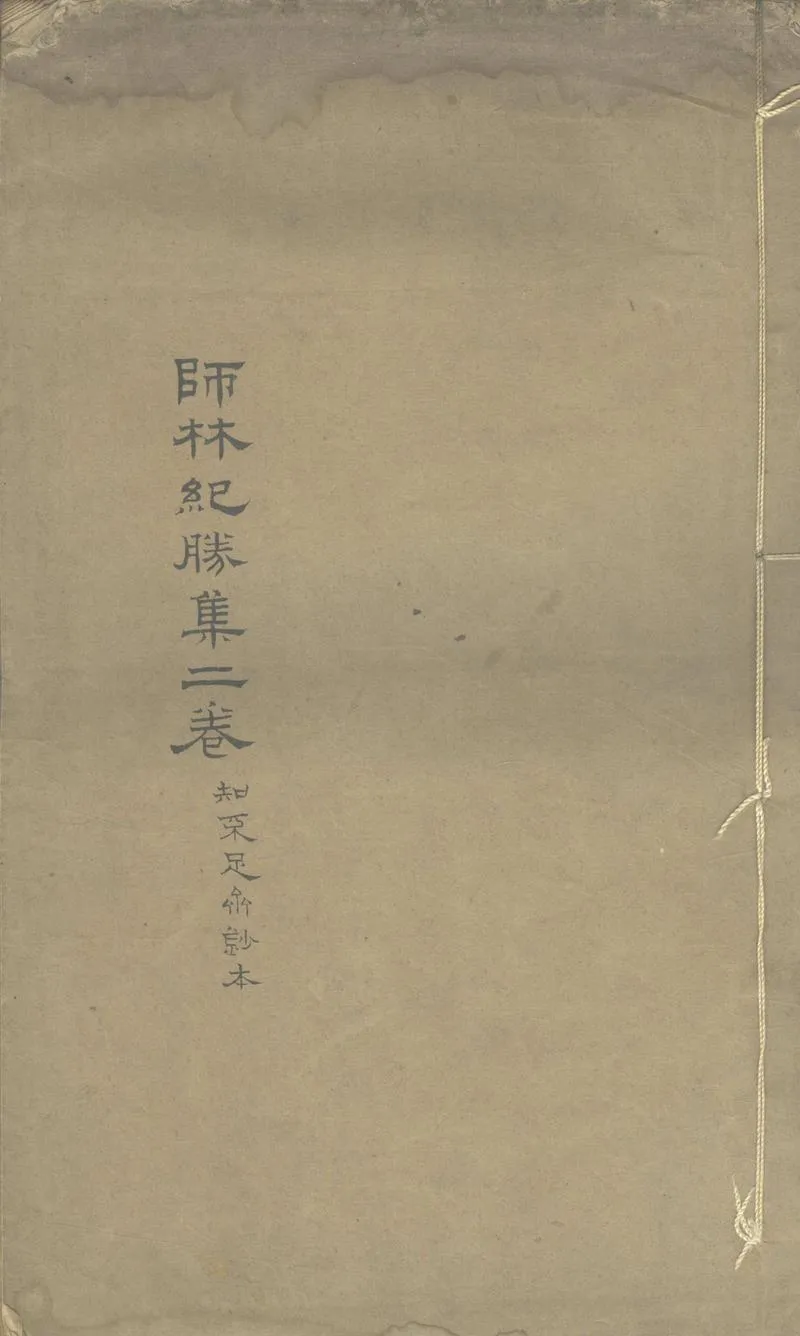 師林紀勝集二卷
知不足齋鈔本